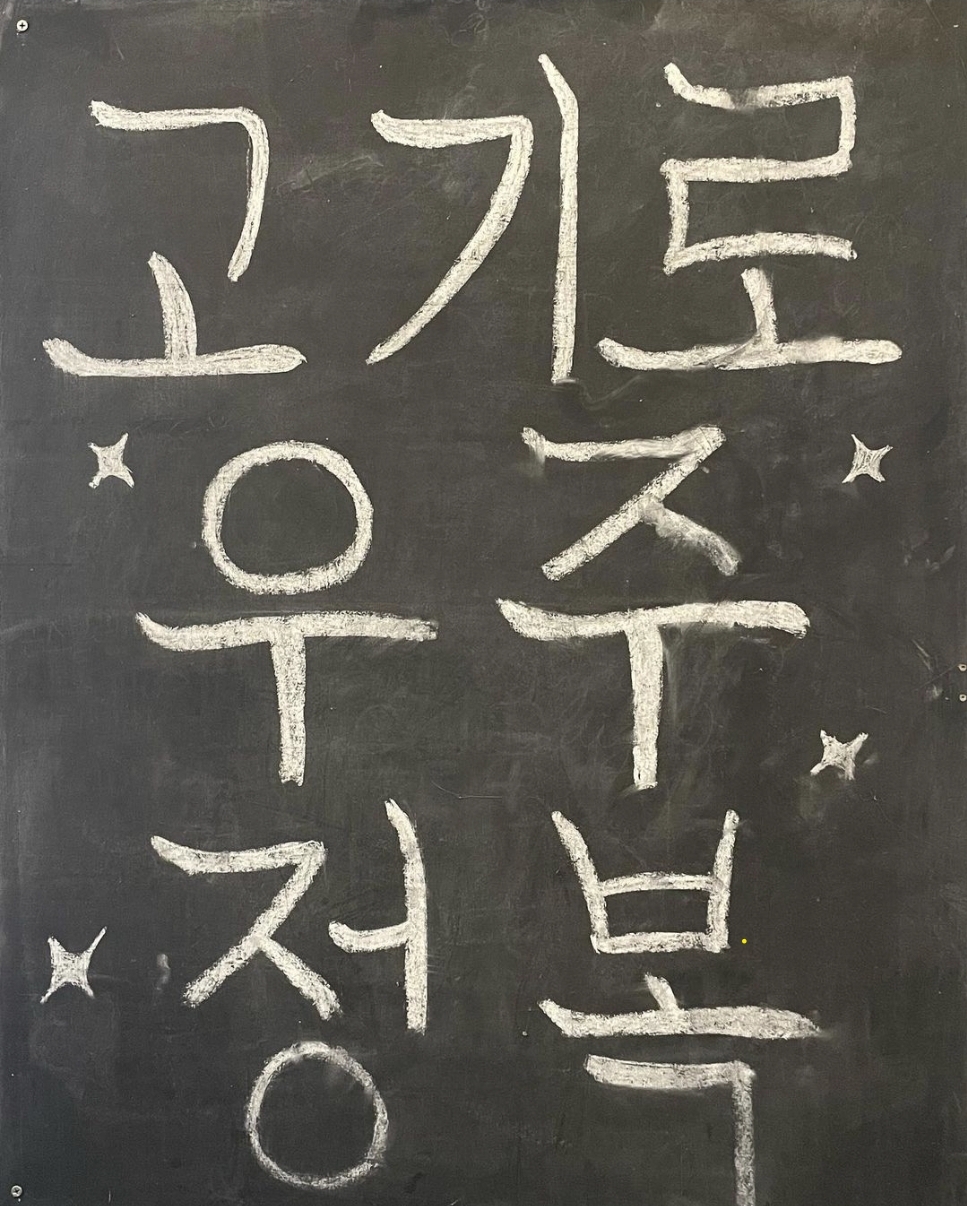 고기로
우주
정복